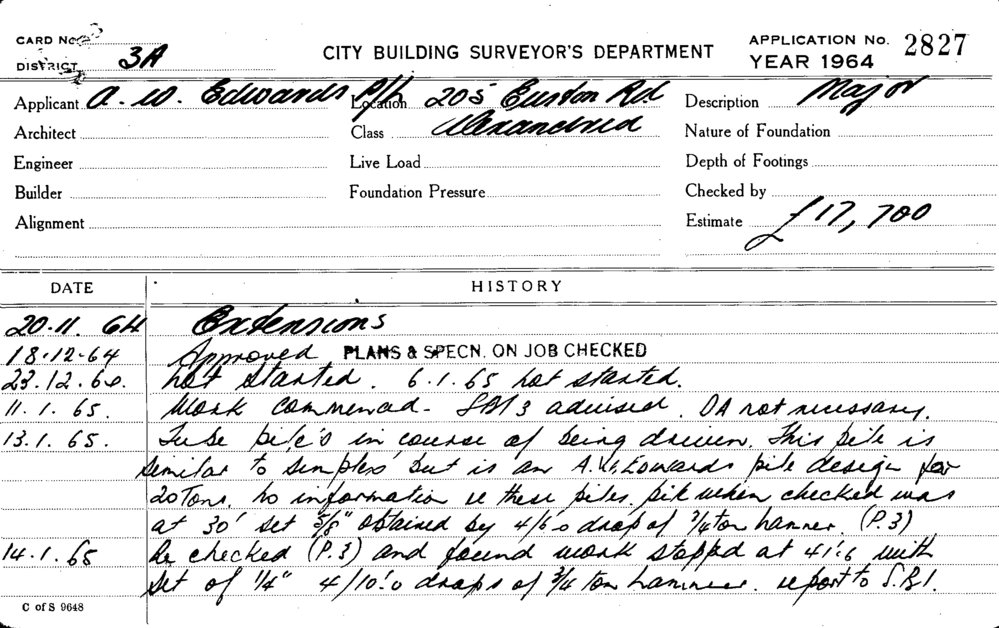 CARD No.
DISTRICT 3A
CITY BUILDING SURVEYOR'S DEPARTMENT
APPLICATION No. 2827
YEAR 1964
Applicant A. W. Edwards P/L Location 205 Euston Rd Description Major
Architect Class Alexandria Nature of Foundation
Engineer Live Load Depth of Footings
Builder Foundation Pressure Checked by
Alignment Estimate £17,700
DATE HISTORY
20.11.64 Extensions
18.12.64 Approved PLANS & SPECN. ON JOB CHECKED
23.12.64. Not started. 6.1.65 not started.
11.1.65. Work commenced - advised. DA not necessary.
13.1.65. Tube pile's in course of being driven. This pile is
similar to simplex but is an A.W. Edwards pile design for
20 Tons. No information re these piles. pile when checked was
at 30' set 5/8" obtained by 4/6'0 drop of 3/4 ton hammer. (P.3)
14.1.65 Re checked (P.3) and found work stopped at 41'6 with
set of 1/4" 4/10'0 drops of 3/4 ton hammer. report to S.B.I.
C of S 9648